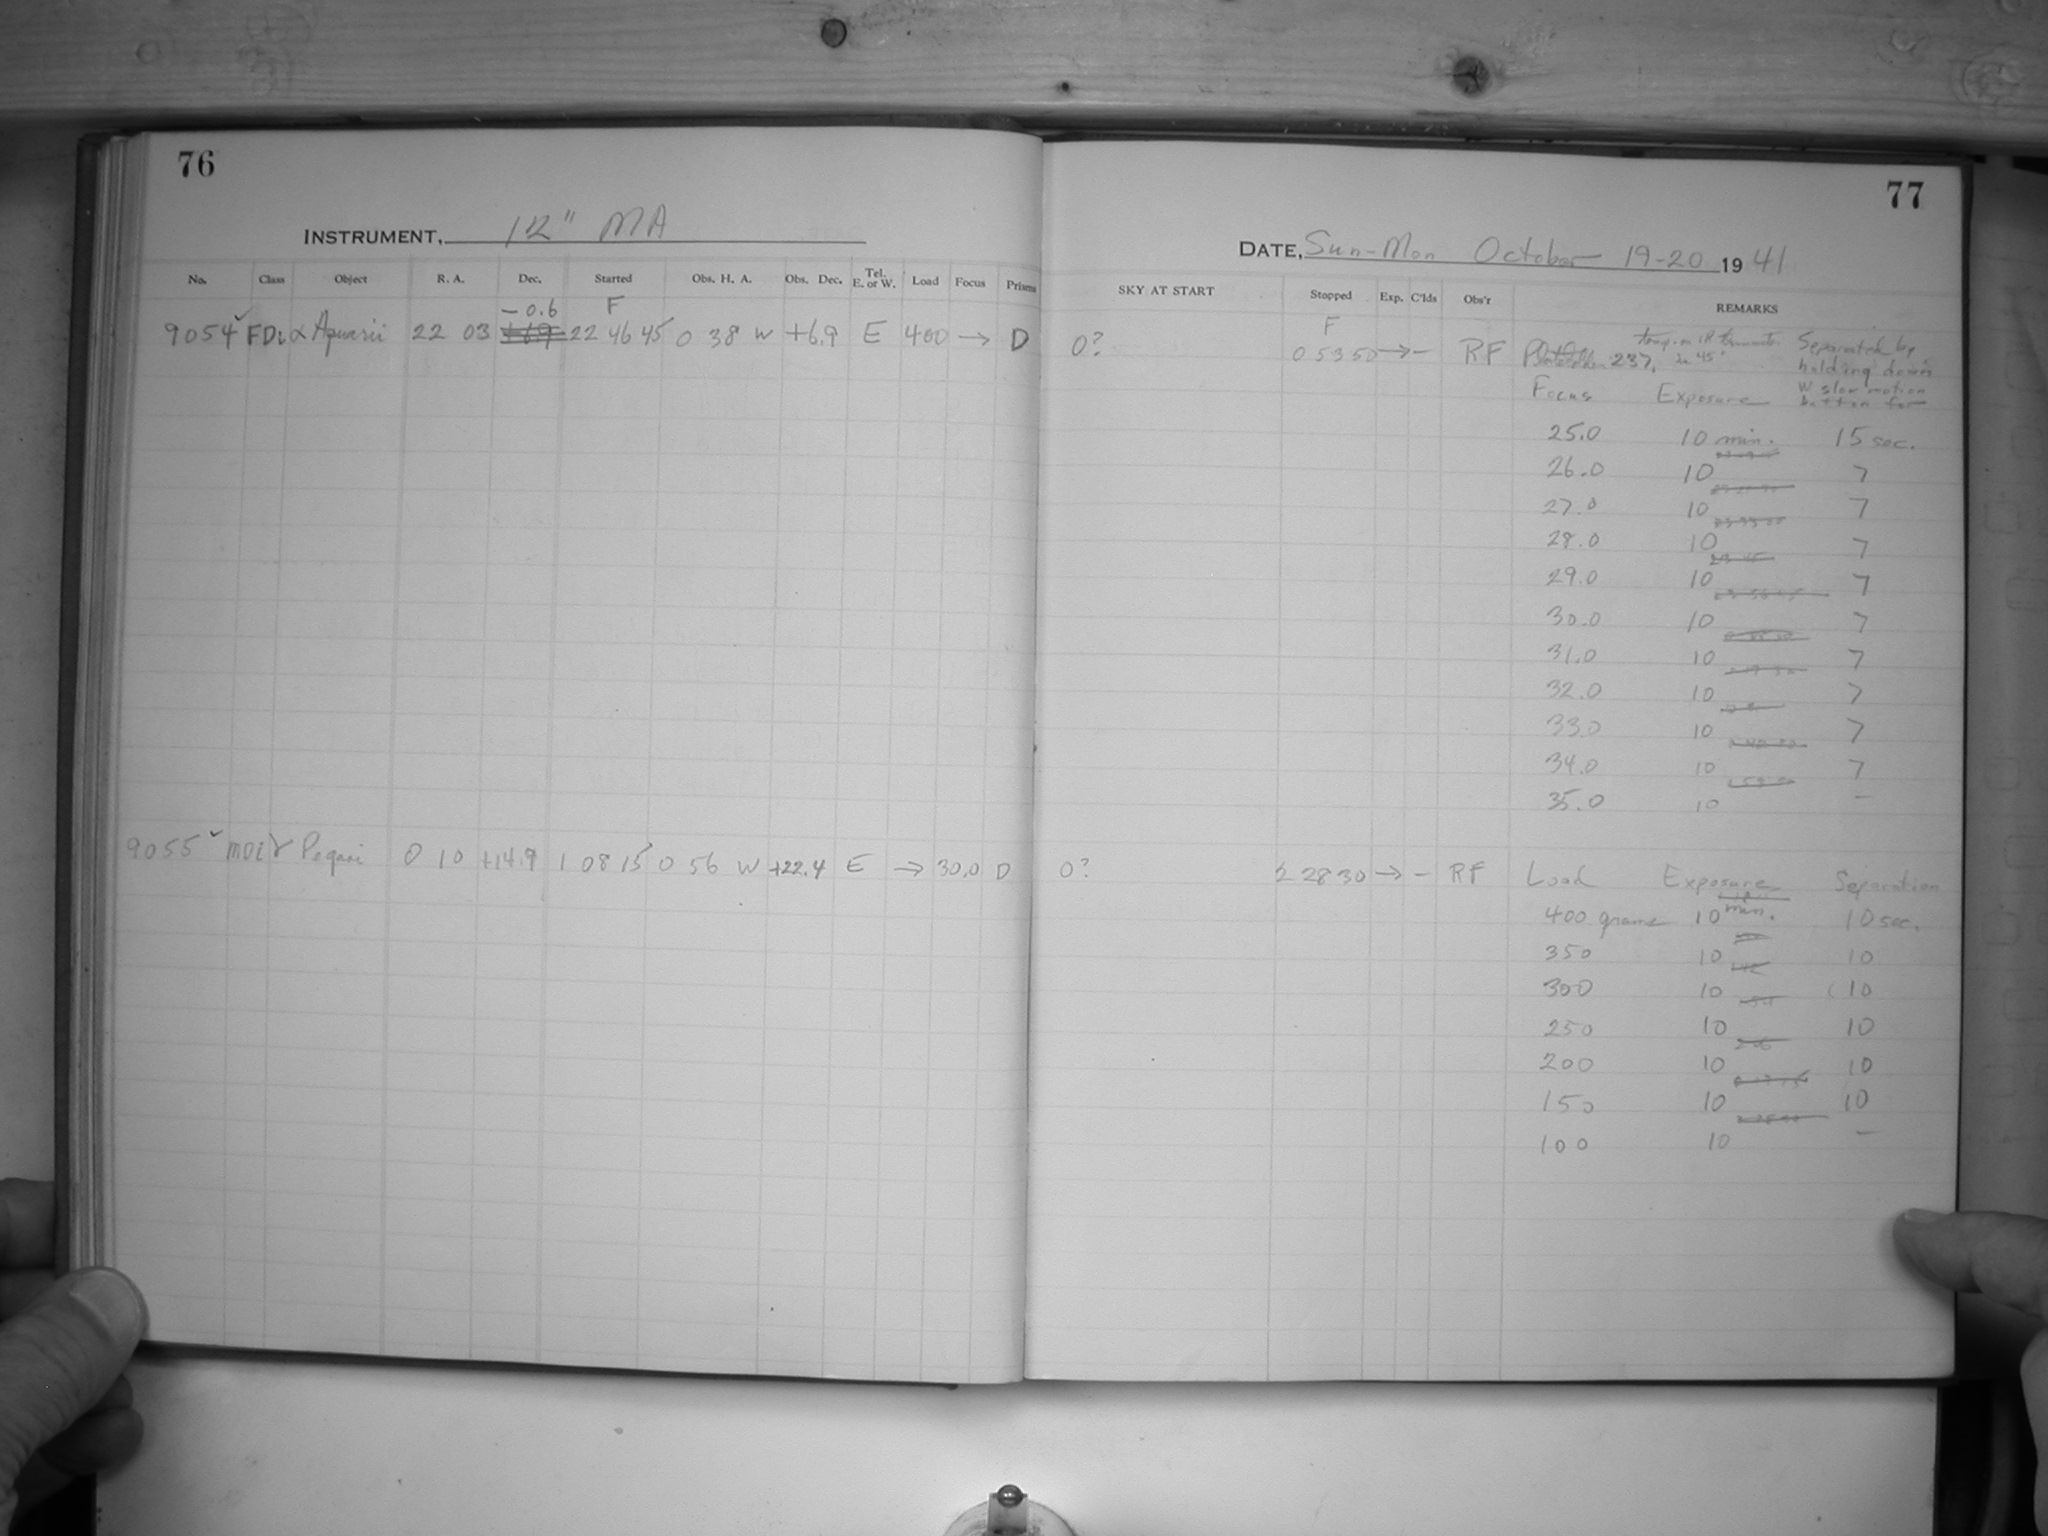 76
INSTRUMENT, 12" MA
No. Class Object R. A. Dec. Started Obs. H. A. Obs. Dec. Tel. E. or W. Load Focus Prisms
- 0.6 F
9054 ✓ FDi α Aquarii 22 03 +6.9 22 46 45 0 38 W +6.9 E 400 → D
9055 ✓ MDi γ Pegasi 0 10 +14.9 1 08 15 0 56 W +22.4 E → 30.0 D
77
DATE, Sun-Mon October 19-20 1941
SKY AT START Stopped Exp. C'lds Obs'r REMARKS
F
0? 0 53 50 → - RF 237, Separated by
holding down
Focus Exposure W slow motion
button for
25.0 10 min. 15 sec.
26.0 10 7
27.0 10 7
28.0 10 7
29.0 10 7
30.0 10 7
31.0 10 7
32.0 10 7
33.0 10 7
34.0 10 7
35.0 10 —
0? 2 28 30 → - RF Load Exposure Separation
400 grams 10 min. 10 sec.
350 10 10
300 10 10
250 10 10
200 10 10
150 10 10
100 10 —